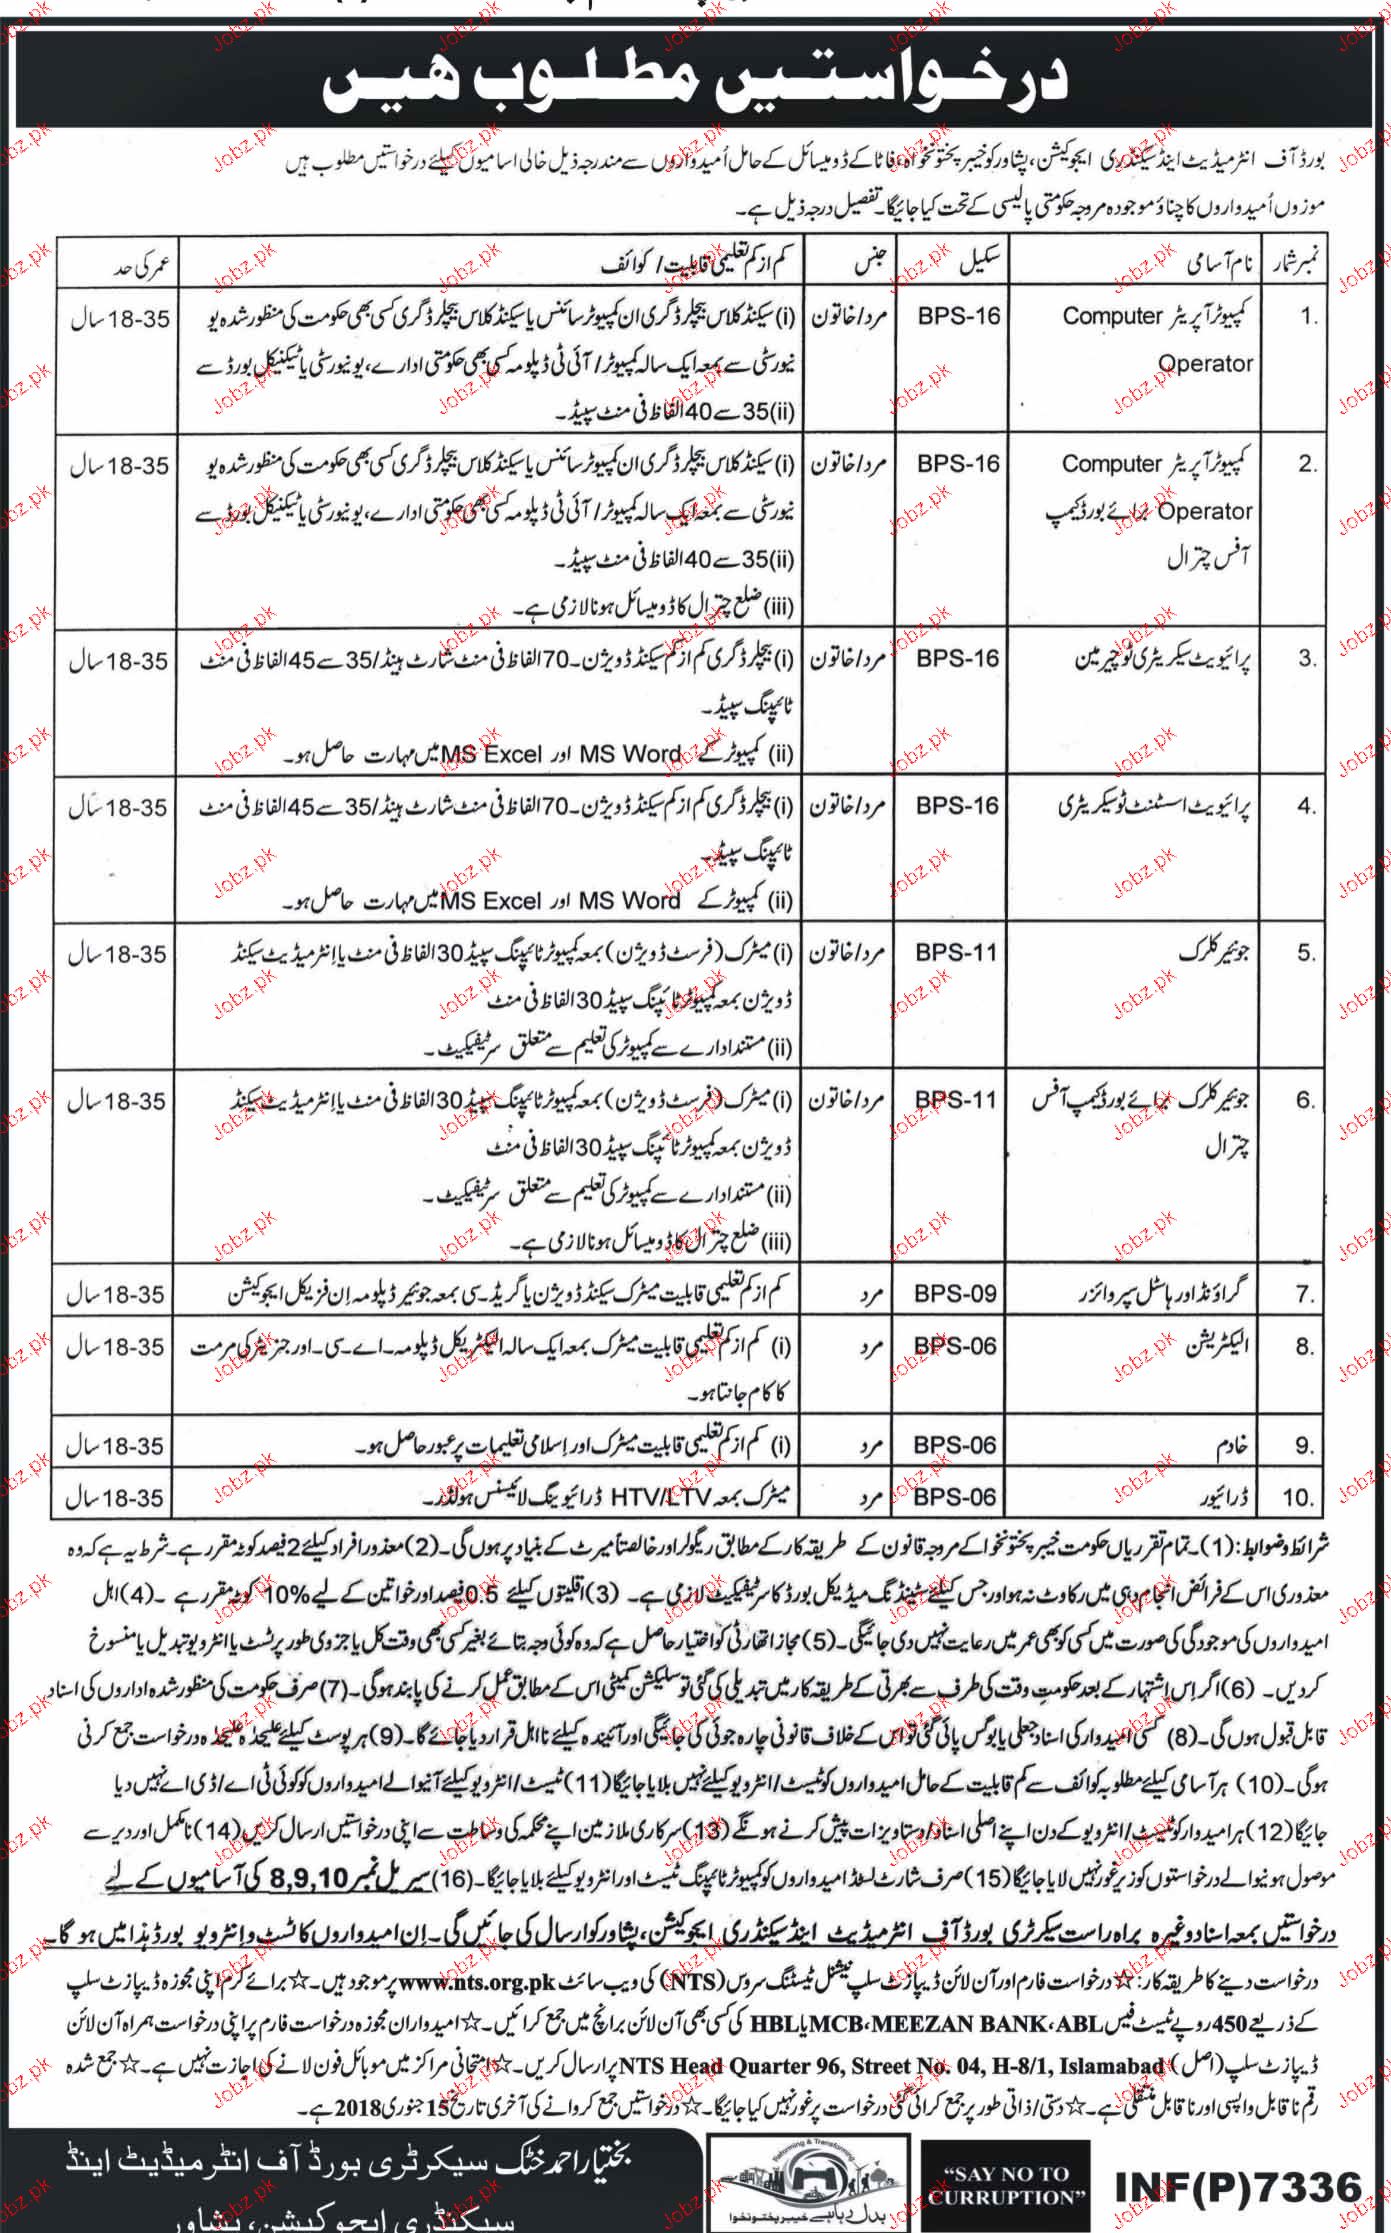 درخواستیں مطلوب ھیں
بورڈ آف انٹرمیڈیٹ اینڈ سیکنڈری ایجوکیشن، پشاور کو خیبر پختونخواہ، فاٹا کے ڈومیسائل کے حامل اُمیدواروں سے مندرجہ ذیل خالی اسامیوں کیلئے درخواستیں مطلوب ہیں
موزوں اُمیدواروں کا چناؤ موجودہ مروجہ حکومتی پالیسی کے تحت کیا جائیگا۔ تفصیل درجہ ذیل ہے۔
نمبر شمار نام آسامی سکیل جنس کم از کم تعلیمی قابلیت/ کوائف عمر کی حد
1. کمپیوٹر آپریٹر Computer BPS-16 مرد/خاتون (i) سیکنڈ کلاس بیچلر ڈگری ان کمپیوٹر سائنس یا سیکنڈ کلاس بیچلر ڈگری کسی بھی حکومت کی منظور شدہ یو 18-35 سال
Operator نیورسٹی سے بمعہ ایک سالہ کمپیوٹر/ آئی ٹی ڈپلومہ کسی بھی حکومتی ادارے، یونیورسٹی یا ٹیکنیکل بورڈ سے
(ii) 35 سے 40 الفاظ فی منٹ سپیڈ۔
2. کمپیوٹر آپریٹر Computer BPS-16 مرد/خاتون (i) سیکنڈ کلاس بیچلر ڈگری ان کمپیوٹر سائنس یا سیکنڈ کلاس بیچلر ڈگری کسی بھی حکومت کی منظور شدہ یو 18-35 سال
Operator برائے بورڈ کیمپ نیورسٹی سے بمعہ ایک سالہ کمپیوٹر/ آئی ٹی ڈپلومہ کسی بھی حکومتی ادارے، یونیورسٹی یا ٹیکنیکل بورڈ سے
آفس چترال (ii) 35 سے 40 الفاظ فی منٹ سپیڈ۔
(iii) ضلع چترال کا ڈومیسائل ہونا لازمی ہے۔
3. پرائیویٹ سیکریٹری ٹو چیرمین BPS-16 مرد/خاتون (i) بیچلر ڈگری کم از کم سیکنڈ ڈویژن۔ 70 الفاظ فی منٹ شارٹ ہینڈ/ 35 سے 45 الفاظ فی منٹ 18-35 سال
ٹائپنگ سپیڈ۔
(ii) کمپیوٹر کے MS Word اور MS Excel میں مہارت حاصل ہو۔
4. پرائیویٹ اسسٹنٹ ٹو سیکریٹری BPS-16 مرد/خاتون (i) بیچلر ڈگری کم از کم سیکنڈ ڈویژن۔ 70 الفاظ فی منٹ شارٹ ہینڈ/ 35 سے 45 الفاظ فی منٹ 18-35 سال
ٹائپنگ سپیڈ۔
(ii) کمپیوٹر کے MS Word اور MS Excel میں مہارت حاصل ہو۔
5. جونیئر کلرک BPS-11 مرد/خاتون (i) میٹرک (فرسٹ ڈویژن) بمعہ کمپیوٹر ٹائپنگ سپیڈ 30 الفاظ فی منٹ یا انٹرمیڈیٹ سیکنڈ 18-35 سال
ڈویژن بمعہ کمپیوٹر ٹائپنگ سپیڈ 30 الفاظ فی منٹ
(ii) مستند ادارے سے کمپیوٹر کی تعلیم سے متعلق سرٹیفیکیٹ۔
6. جونیئر کلرک برائے بورڈ کیمپ آفس BPS-11 مرد/خاتون (i) میٹرک (فرسٹ ڈویژن) بمعہ کمپیوٹر ٹائپنگ سپیڈ 30 الفاظ فی منٹ یا انٹرمیڈیٹ سیکنڈ 18-35 سال
چترال ڈویژن بمعہ کمپیوٹر ٹائپنگ سپیڈ 30 الفاظ فی منٹ
(ii) مستند ادارے سے کمپیوٹر کی تعلیم سے متعلق سرٹیفیکیٹ۔
(iii) ضلع چترال کا ڈومیسائل ہونا لازمی ہے۔
7. گراؤنڈ اور ہاسٹل سپروائزر BPS-09 مرد کم از کم تعلیمی قابلیت میٹرک سیکنڈ ڈویژن یا گریڈ۔سی بمعہ جونیئر ڈپلومہ اِن فزیکل ایجوکیشن 18-35 سال
8. الیکٹریشن BPS-06 مرد (i) کم از کم تعلیمی قابلیت میٹرک بمعہ ایک سالہ الیکٹریکل ڈپلومہ۔ اے۔سی۔ اور جنریٹر کی مرمت 18-35 سال
کا کام جانتا ہو۔
9. خادم BPS-06 مرد (i) کم از کم تعلیمی قابلیت میٹرک اور اسلامی تعلیمات پر عبور حاصل ہو۔ 18-35 سال
10. ڈرائیور BPS-06 مرد میٹرک بمعہ HTV/LTV ڈرائیونگ لائیسنس ہولڈر۔ 18-35 سال
شرائط و ضوابط: (1)۔ تمام تقرریاں حکومت خیبر پختونخوا کے مروجہ قانون کے طریقہ کار کے مطابق ریگولر اور خالصتاً میرٹ کے بنیاد پر ہوں گی۔ (2) معذور افراد کیلئے 2 فیصد کوٹہ مقرر ہے۔ شرط یہ ہے کہ وہ
معذوری اس کے فرائض انجام دہی میں رکاوٹ نہ ہو اور جس کیلئے سٹینڈنگ میڈیکل بورڈ کا سرٹیفیکیٹ لازمی ہے۔ (3) اقلیتوں کیلئے 0.5 فیصد اور خواتین کے لیے 10% کوٹہ مقرر ہے۔ (4) اہل
امیدواروں کی موجودگی کی صورت میں کسی کو بھی عمر میں رعایت نہیں دی جائیگی۔ (5) مجاز اتھارٹی کو اختیار حاصل ہے کہ وہ کوئی وجہ بتائے بغیر کسی بھی وقت کل یا جزوی طور پر ٹسٹ یا انٹرویو تبدیل یا منسوخ
کر دیں۔ (6) اگر اِس اشتہار کے بعد حکومتِ وقت کی طرف سے بھرتی کے طریقہ کار میں تبدیلی کی گئی تو سلیکشن کمیٹی اس کے مطابق عمل کرنے کی پابند ہوگی۔ (7) صرف حکومت کی منظور شدہ اداروں کی اسناد
قابل قبول ہوں گی۔ (8) کسی امیدوار کی اسناد جعلی یا بوگس پائی گئی تو اس کے خلاف قانونی چارہ جوئی کی جائیگی اور آئیندہ کیلئے نا اہل قرار دیا جائے گا۔ (9) ہر پوسٹ کیلئے علیحدہ علیحدہ درخواست جمع کرنی
ہوگی۔ (10) ہر آسامی کیلئے مطلوبہ کوائف سے کم قابلیت کے حامل امیدواروں کو ٹیسٹ/ انٹرویو کیلئے نہیں بلایا جائیگا (11) ٹیسٹ/ انٹرویو کیلئے آنیوالے امیدواروں کو کوئی ٹی اے/ ڈی اے نہیں دیا
جائیگا (12) ہر امیدوار کو ٹیسٹ/ انٹرویو کے دن اپنے اصلی اسناد/ دستاویزات پیش کرنے ہونگے (13) سرکاری ملازمین اپنے محکمہ کی وساطت سے اپنی درخواستیں ارسال کریں (14) نامکمل اور دیر سے
موصول ہونیوالے درخواستوں کو زیر غور نہیں لایا جائیگا (15) صرف شارٹ لسٹڈ امیدواروں کو کمپیوٹر ٹائپنگ ٹیسٹ اور انٹرویو کیلئے بلایا جائیگا۔ (16) سیریل نمبر 8,9,10 کی آسامیوں کے لیے
درخواستیں بمعہ اسناد وغیرہ براہ راست سیکرٹری بورڈ آف انٹرمیڈیٹ اینڈ سیکنڈری ایجوکیشن، پشاور کو ارسال کی جائیں گی۔ اِن امیدواروں کا ٹسٹ و انٹرویو بورڈ ہذا میں ہوگا۔
درخواست دینے کا طریقہ کار: ☆ درخواست فارم اور آن لائن ڈیپازٹ سلپ نیشنل ٹیسٹنگ سروس (NTS) کی ویب سائٹ www.nts.org.pk پر موجود ہیں۔ ☆ برائے کرم اپنی مجوزہ ڈیپازٹ سلپ
کے ذریعے 450 روپے ٹیسٹ فیس MCB، MEEZAN BANK، ABL یا HBL کی کسی بھی آن لائن برانچ میں جمع کرائیں۔ ☆ امیدواران مجوزہ درخواست فارم پر اپنی درخواست ہمراہ آن لائن
ڈیپازٹ سلپ (اصل) NTS Head Quarter 96, Street No. 04, H-8/1, Islamabad پر ارسال کریں۔ ☆ امتحانی مراکز میں موبائل فون لانے کی اجازت نہیں ہے۔ ☆ جمع شدہ
رقم ناقابل واپسی اور ناقابل منتقلی ہے۔ ☆ دستی/ ذاتی طور پر جمع کرائی گئی درخواست پر غور نہیں کیا جائیگا۔ ☆ درخواستیں جمع کروانے کی آخری تاریخ 15 جنوری 2018 ہے۔
بختیار احمد خٹک سیکرٹری بورڈ آف انٹرمیڈیٹ اینڈ
سیکنڈری ایجوکیشن، پشاور
Reforming & Transforming
بدل رہا ہے خیبر پختونخوا
“SAY NO TO
CURRUPTION”
INF(P)7336
Jobz.pk